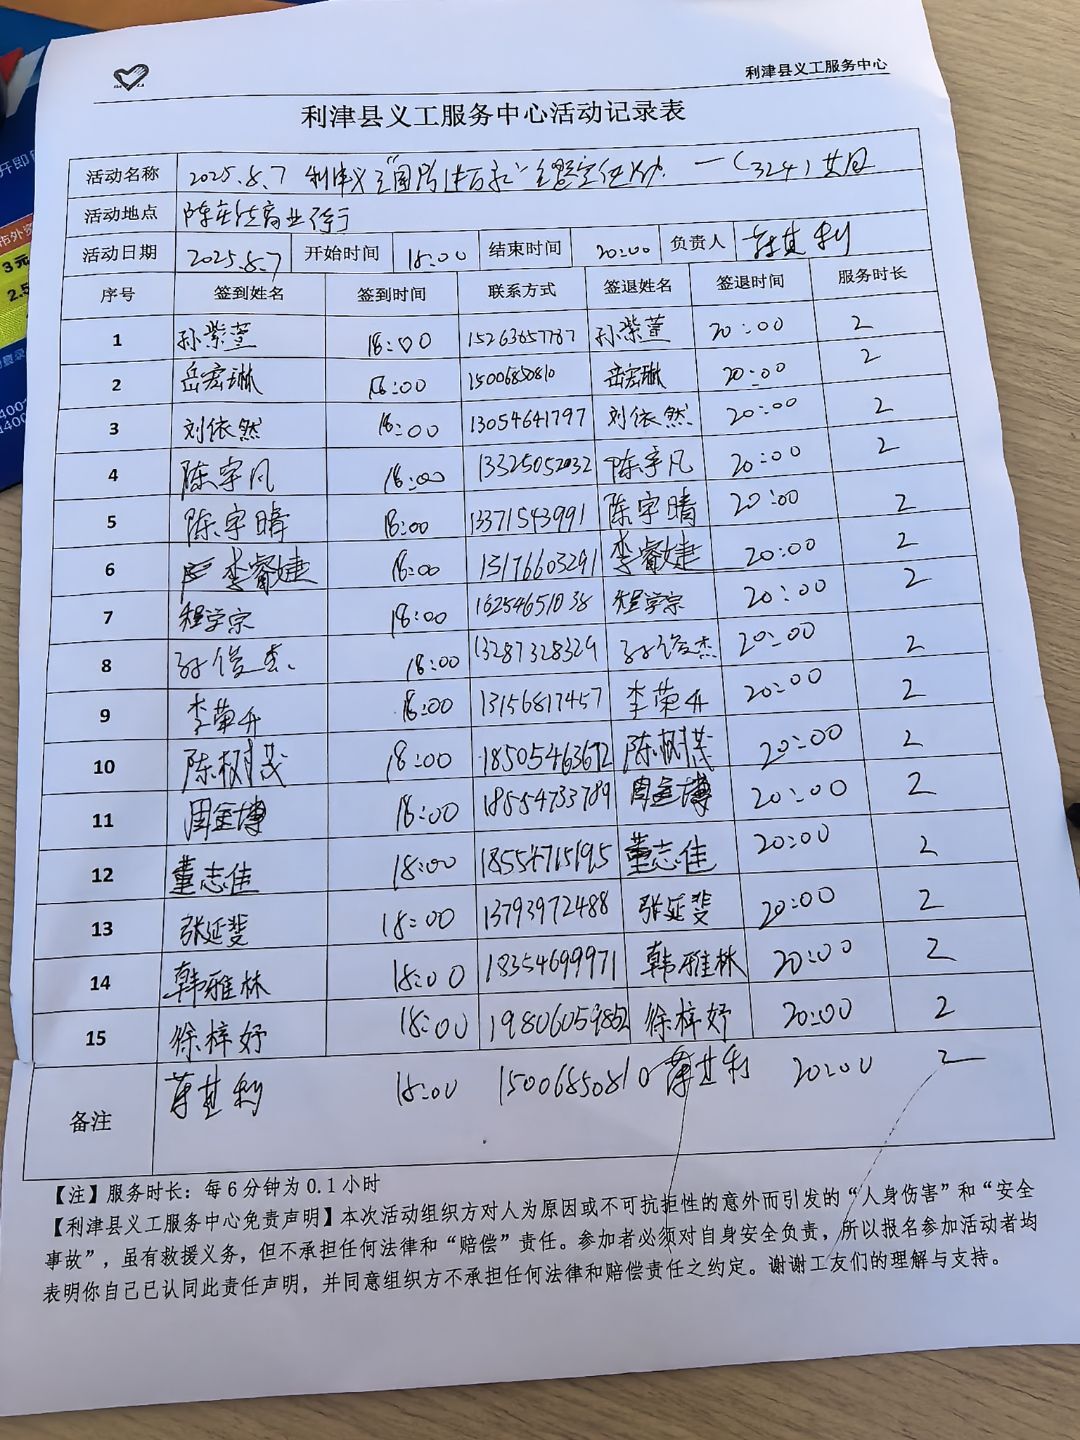 利津县义工服务中心
利津县义工服务中心活动记录表
活动名称 2025.8.7 利津义工"国防进万家" 一(324)
活动地点 陈庄 商业街
活动日期 2025.8.7 开始时间 18:00 结束时间 20:00 负责人 薄其利
序号 签到姓名 签到时间 联系方式 签退姓名 签退时间 服务时长
1 孙紫萱 18:00 15263857787 孙紫萱 20:00 2
2 岳宏琳 18:00 15006850810 岳宏琳 20:00 2
3 刘依然 18:00 13054641797 刘依然 20:00 2
4 陈宇凡 18:00 13325052032 陈宇凡 20:00 2
5 陈宇晴 18:00 13371543991 陈宇晴 20:00 2
6 李睿婕 18:00 15176603291 李睿婕 20:00 2
7 程学宗 18:00 16254651038 程学宗 20:00 2
8 孙俊杰 18:00 13287328329 孙俊杰 20:00 2
9 李荣升 18:00 13156817457 李荣升 20:00 2
10 陈树茂 18:00 18505463672 陈树茂 20:00 2
11 周金博 18:00 18554733789 周金博 20:00 2
12 董志佳 18:00 18554715195 董志佳 20:00 2
13 张延斐 18:00 13793972488 张延斐 20:00 2
14 韩雅林 18:00 18354699971 韩雅林 20:00 2
15 徐梓妤 18:00 19806059852 徐梓妤 20:00 2
备注 薄其利 18:00 15006850810 薄其利 20:00 2
【注】服务时长：每6分钟为0.1小时
【利津县义工服务中心免责声明】本次活动组织方对人为原因或不可抗拒性的意外而引发的“人身伤害”和“安全
事故”，虽有救援义务，但不承担任何法律和“赔偿”责任。参加者必须对自身安全负责，所以报名参加活动者均
表明你自己已认同此责任声明，并同意组织方不承担任何法律和赔偿责任之约定。谢谢工友们的理解与支持。